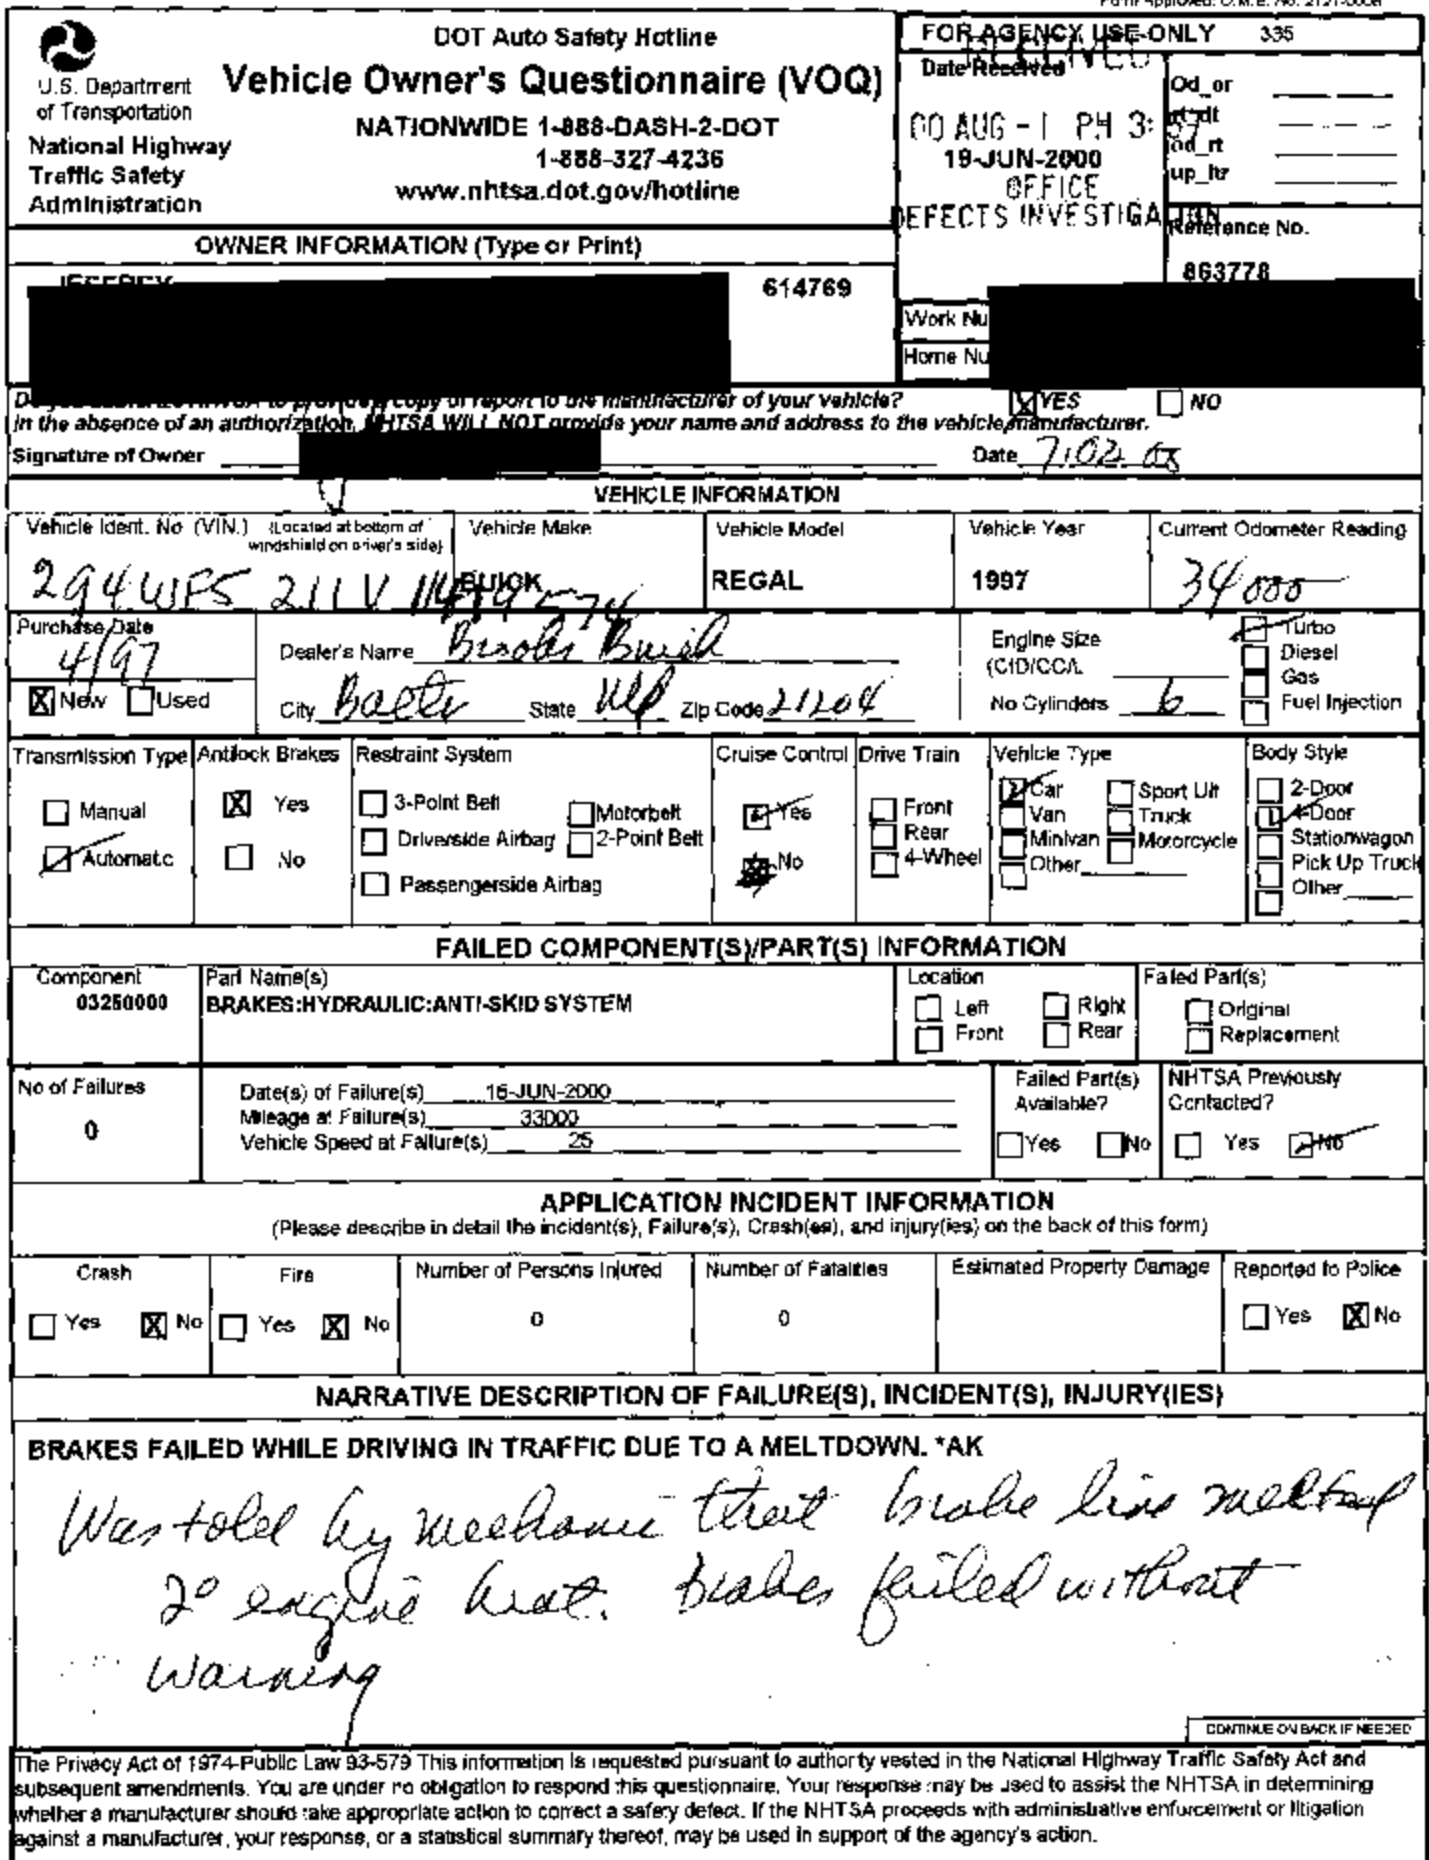 DOT Auto Safety Hotline
Vehicle Owner's Questionnaire (VOQ)
NATIONWIDE 1-888-DASH-2-DOT
1-888-327-4236
www.nhtsa.dot.gov/hotline
U.S. Department
of Transportation
National Highway
Traffic Safety
Administration
FOR AGENCY USE ONLY 335
RECEIVED
Date Received
00 AUG -1 PM 3: 57
19-JUN-2000
OFFICE
DEFECTS INVESTIGATION
Od_or
od_rt
up_ltr
Reference No.
863778
OWNER INFORMATION (Type or Print)
614769
Work Nu
Home Nu
copy of report to the manufacturer of your vehicle? YES NO
In the absence of an authorization, NHTSA WILL NOT provide your name and address to the vehicle manufacturer.
Signature of Owner Date
VEHICLE INFORMATION
Vehicle Ident. No (VIN.) (Located at bottom of windshield on driver's side)
Vehicle Make
BUICK
Vehicle Model
REGAL
Vehicle Year
1997
Current Odometer Reading
34000
Purchase Date
4/97
New Used
Dealer's Name Buick
City Balto State MD Zip Code 21204
Engine Size
(CID/CC/L
No Cylinders 6
Turbo
Diesel
Gas
Fuel Injection
Transmission Type
Manual
Automatic
Antilock Brakes
Yes
No
Restraint System
3-Point Belt
Driverside Airbag
Passengerside Airbag
Motorbelt
2-Point Belt
Cruise Control
Yes
No
Drive Train
Front
Rear
4-Wheel
Vehicle Type
Car
Van
Minivan
Other
Sport Ut
Truck
Motorcycle
Body Style
2-Door
4-Door
Stationwagon
Pick Up Truck
Other
FAILED COMPONENT(S)/PART(S) INFORMATION
Component
03250000
Part Name(s)
BRAKES:HYDRAULIC:ANTI-SKID SYSTEM
Location
Left Right
Front Rear
Failed Part(s)
Original
Replacement
No of Failures
0
Date(s) of Failure(s) 16-JUN-2000
Mileage at Failure(s) 33000
Vehicle Speed at Failure(s) 25
Failed Part(s)
Available?
Yes No
NHTSA Previously
Contacted?
Yes No
APPLICATION INCIDENT INFORMATION
(Please describe in detail the incident(s), Failure(s), Crash(es), and injury(ies) on the back of this form)
Crash
Yes No
Fire
Yes No
Number of Persons Injured
0
Number of Fatalities
0
Estimated Property Damage
Reported to Police
Yes No
NARRATIVE DESCRIPTION OF FAILURE(S), INCIDENT(S), INJURY(IES)
BRAKES FAILED WHILE DRIVING IN TRAFFIC DUE TO A MELTDOWN. *AK
Was told by mechanic that brake line melted
2° engine heat. Brakes failed without
warning
CONTINUE ON BACK IF NEEDED
The Privacy Act of 1974-Public Law 93-579 This information is requested pursuant to authority vested in the National Highway Traffic Safety Act and
subsequent amendments. You are under no obligation to respond this questionnaire, Your response may be used to assist the NHTSA in determining
whether a manufacturer should take appropriate action to correct a safety defect. If the NHTSA proceeds with administrative enforcement or litigation
against a manufacturer, your response, or a statistical summary thereof, may be used in support of the agency's action.